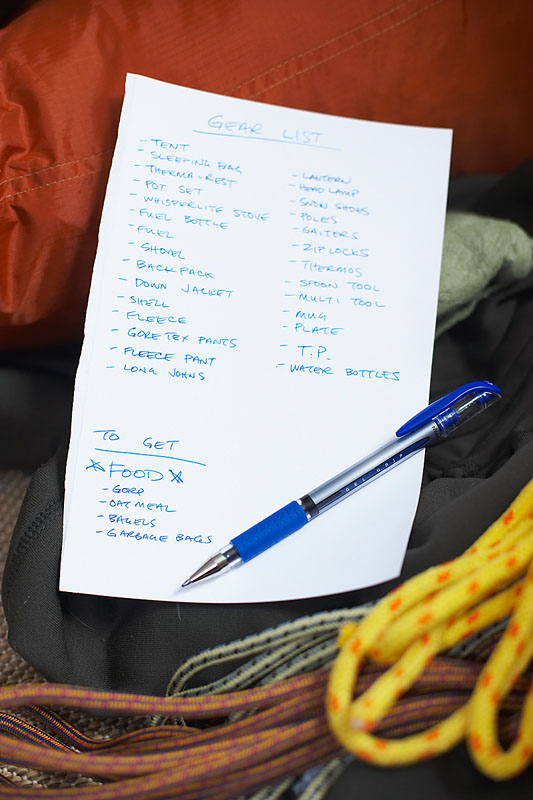 GEAR LIST
- TENT
- SLEEPING BAG
- THERMA-REST
- POT SET
- WHISPERLITE STOVE
- FUEL BOTTLE
- FUEL
- SHOVEL
- BACKPACK
- DOWN JACKET
- SHELL
- FLEECE
- GORETEX PANTS
- FLEECE PANT
- LONG JOHNS
- LANTERN
- HEAD LAMP
- SNOW SHOES
- POLES
- GAITERS
- ZIPLOCKS
- THERMOS
- SPOON TOOL
- MULTI TOOL
- MUG
- PLATE
- T.P.
- WATER BOTTLES
TO GET
FOOD
- GORP
- OATMEAL
- BAGELS
- GARBAGE BAGS
GEL GRIP